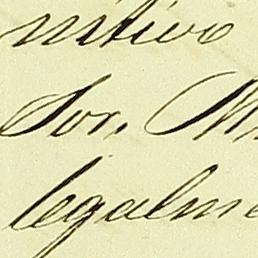 nitivo
Sor. M
legalme